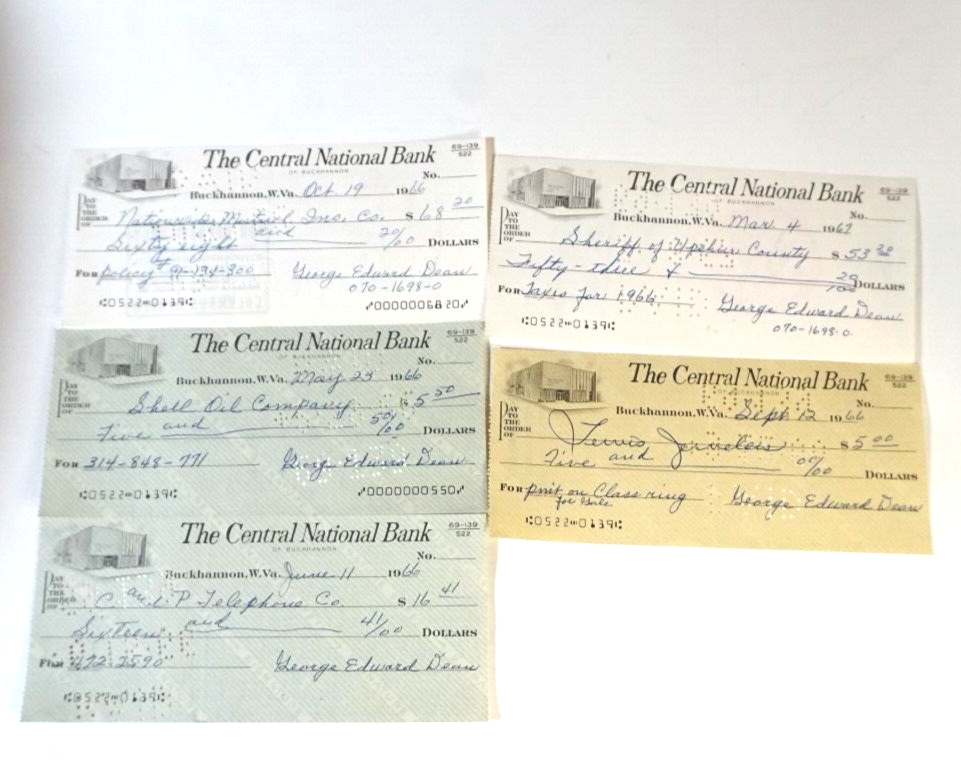 The Central National Bank
OF BUCKHANNON
69-139
522
No.
Buckhannon, W.Va. Oct 19 1966
PAY TO THE ORDER OF
Nationwide Mutual Ins. Co. $ 68 20
Sixty eight and 20/00 DOLLARS
For policy # 91-134-300
George Edward Dean
070-1698-0
⑆0522⑉0139⑆
⑈0000006820⑈
The Central National Bank
OF BUCKHANNON
69-139
522
No.
Buckhannon, W.Va. May 23 1966
PAY TO THE ORDER OF
Shell Oil Company $ 5 50
Five and 50/00 DOLLARS
For 314-848-771
George Edward Dean
⑆0522⑉0139⑆
⑈0000000550⑈
The Central National Bank
OF BUCKHANNON
69-139
522
No.
Buckhannon, W.Va. June 11 1966
PAY TO THE ORDER OF
C and P Telephone Co. $ 16 41
Sixteen and 41/00 DOLLARS
For 472-2590
George Edward Dean
⑆0522⑉0139⑆
The Central National Bank
OF BUCKHANNON
69-139
522
No.
Buckhannon, W.Va. Mar 4 1967
PAY TO THE ORDER OF
Sheriff of Upshur County $ 53 20
Fifty-three & 20/100 DOLLARS
For Taxes for 1966
George Edward Dean
070-1698-0
⑆0522⑉0139⑆
The Central National Bank
OF BUCKHANNON
69-139
522
No.
Buckhannon, W.Va. Sept 12 1966
PAY TO THE ORDER OF
Jewelers $ 5 00
Five and 00/00 DOLLARS
For pmt on Class ring
for
George Edward Dean
⑆0522⑉0139⑆